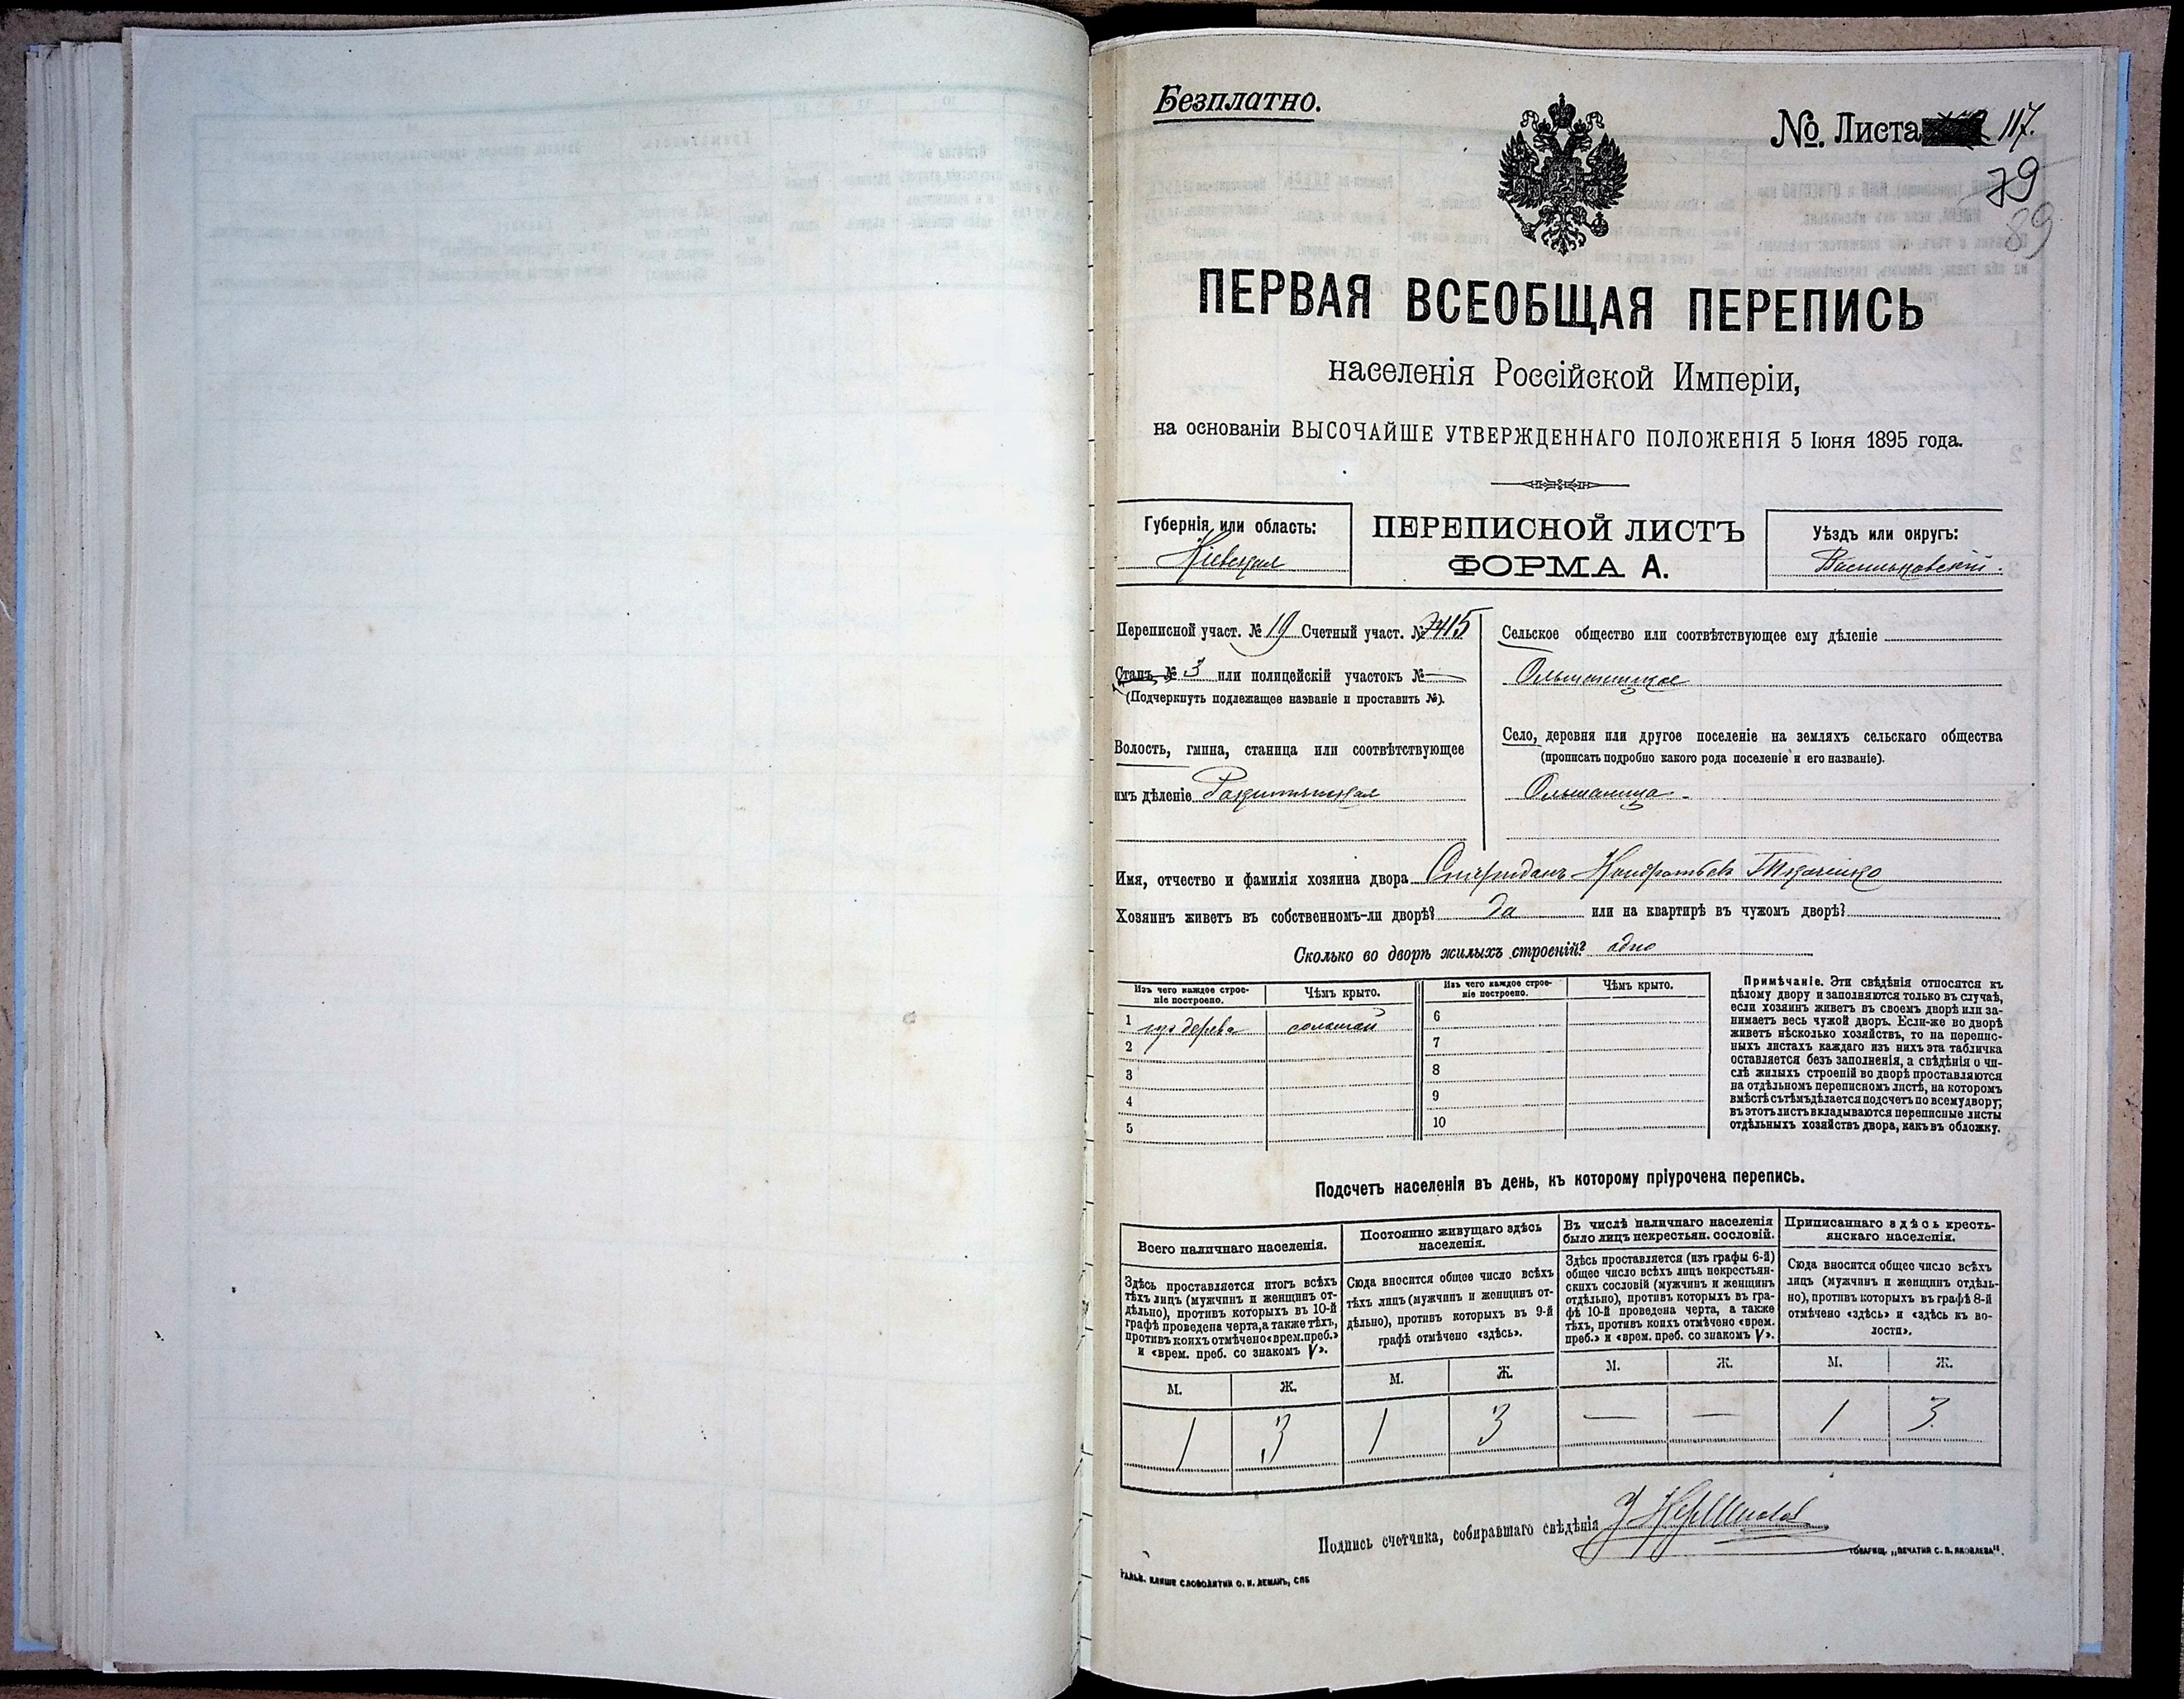 Безплатно.
№. Листа 117.
79
89
ПЕРВАЯ ВСЕОБЩАЯ ПЕРЕПИСЬ
населенія Россійской Имперіи,
на основаніи ВЫСОЧАЙШЕ УТВЕРЖДЕННАГО ПОЛОЖЕНІЯ 5 Іюня 1895 года.
Губернія или область:
Кіевская
ПЕРЕПИСНОЙ ЛИСТЪ
ФОРМА А.
Уѣздъ или округъ:
Васильковскій.
Переписной участ. № 19 Счетный участ. №
Станъ № 3 или полицейскій участокъ № —
(Подчеркнуть подлежащее названіе и проставить №).
Волость, гмина, станица или соотвѣтствующее
имъ дѣленіе
Сельское общество или соотвѣтствующее ему дѣленіе
Ольшаницкое
Село, деревня или другое поселеніе на земляхъ сельскаго общества
(прописать подробно какого рода поселеніе и его названіе).
Ольшаница
Имя, отчество и фамилія хозяина двора Спиридонъ Кондратьевъ Ткаченко
Хозяинъ живетъ въ собственномъ-ли дворѣ? да или на квартирѣ въ чужомъ дворѣ?
Сколько во дворѣ жилыхъ строеній? одно
Изъ чего каждое строе-
ніе построено.
Чѣмъ крыто.
Изъ чего каждое строе-
ніе построено.
Чѣмъ крыто.
1 изъ дерева соломой
2
3
4
5
6
7
8
9
10
Примѣчаніе. Эти свѣдѣнія относятся къ
цѣлому двору и заполняются только въ случаѣ,
если хозяинъ живетъ въ своемъ дворѣ или за-
нимаетъ весь чужой дворъ. Если-же во дворѣ
живетъ нѣсколько хозяйствъ, то на перепис-
ныхъ листахъ каждаго изъ нихъ эта табличка
оставляется безъ заполненія, а свѣдѣнія о чи-
слѣ жилыхъ строеній во дворѣ проставляются
на отдѣльномъ переписномъ листѣ, на которомъ
вмѣстѣ съ тѣмъ дѣлается подсчетъ по всему двору;
въ этотъ листъ вкладываются переписные листы
отдѣльныхъ хозяйствъ двора, какъ въ обложку.
Подсчетъ населенія въ день, къ которому пріурочена перепись.
Всего наличнаго населенія.
Здѣсь проставляется итогъ всѣхъ
тѣхъ лицъ (мужчинъ и женщинъ от-
дѣльно), противъ которыхъ въ 10-й
графѣ проведена черта, а также тѣхъ,
противъ коихъ отмѣчено «врем. преб.»
и «врем. преб. со знакомъ V».
М. Ж.
1 3
Постоянно живущаго здѣсь
населенія.
Сюда вносится общее число всѣхъ
тѣхъ лицъ (мужчинъ и женщинъ от-
дѣльно), противъ которыхъ въ 9-й
графѣ отмѣчено «здѣсь».
М. Ж.
1 3
Въ числѣ наличнаго населенія
было лицъ некрестьян. сословій.
Здѣсь проставляется (изъ графы 6-й)
общее число всѣхъ лицъ некрестьян-
скихъ сословій (мужчинъ и женщинъ
отдѣльно), противъ которыхъ въ гра-
фѣ 10-й проведена черта, а также
тѣхъ, противъ коихъ отмѣчено «врем.
преб.» и «врем. преб. со знакомъ V».
М. Ж.
— —
Приписаннаго здѣсь кресть-
янскаго населенія.
Сюда вносится общее число всѣхъ
лицъ (мужчинъ и женщинъ отдѣль-
но), противъ которыхъ въ графѣ 8-й
отмѣчено «здѣсь» и «здѣсь къ во-
лости».
М. Ж.
1 3
Подпись счетчика, собиравшаго свѣдѣнія
ТОВАРИЩ. „ПЕЧАТНЯ С. П. ЯКОВЛЕВА“.
ГАЛЬВ. КЛИШЕ СЛОВОЛИТНИ О. И. ЛЕМАНЪ, СПБ